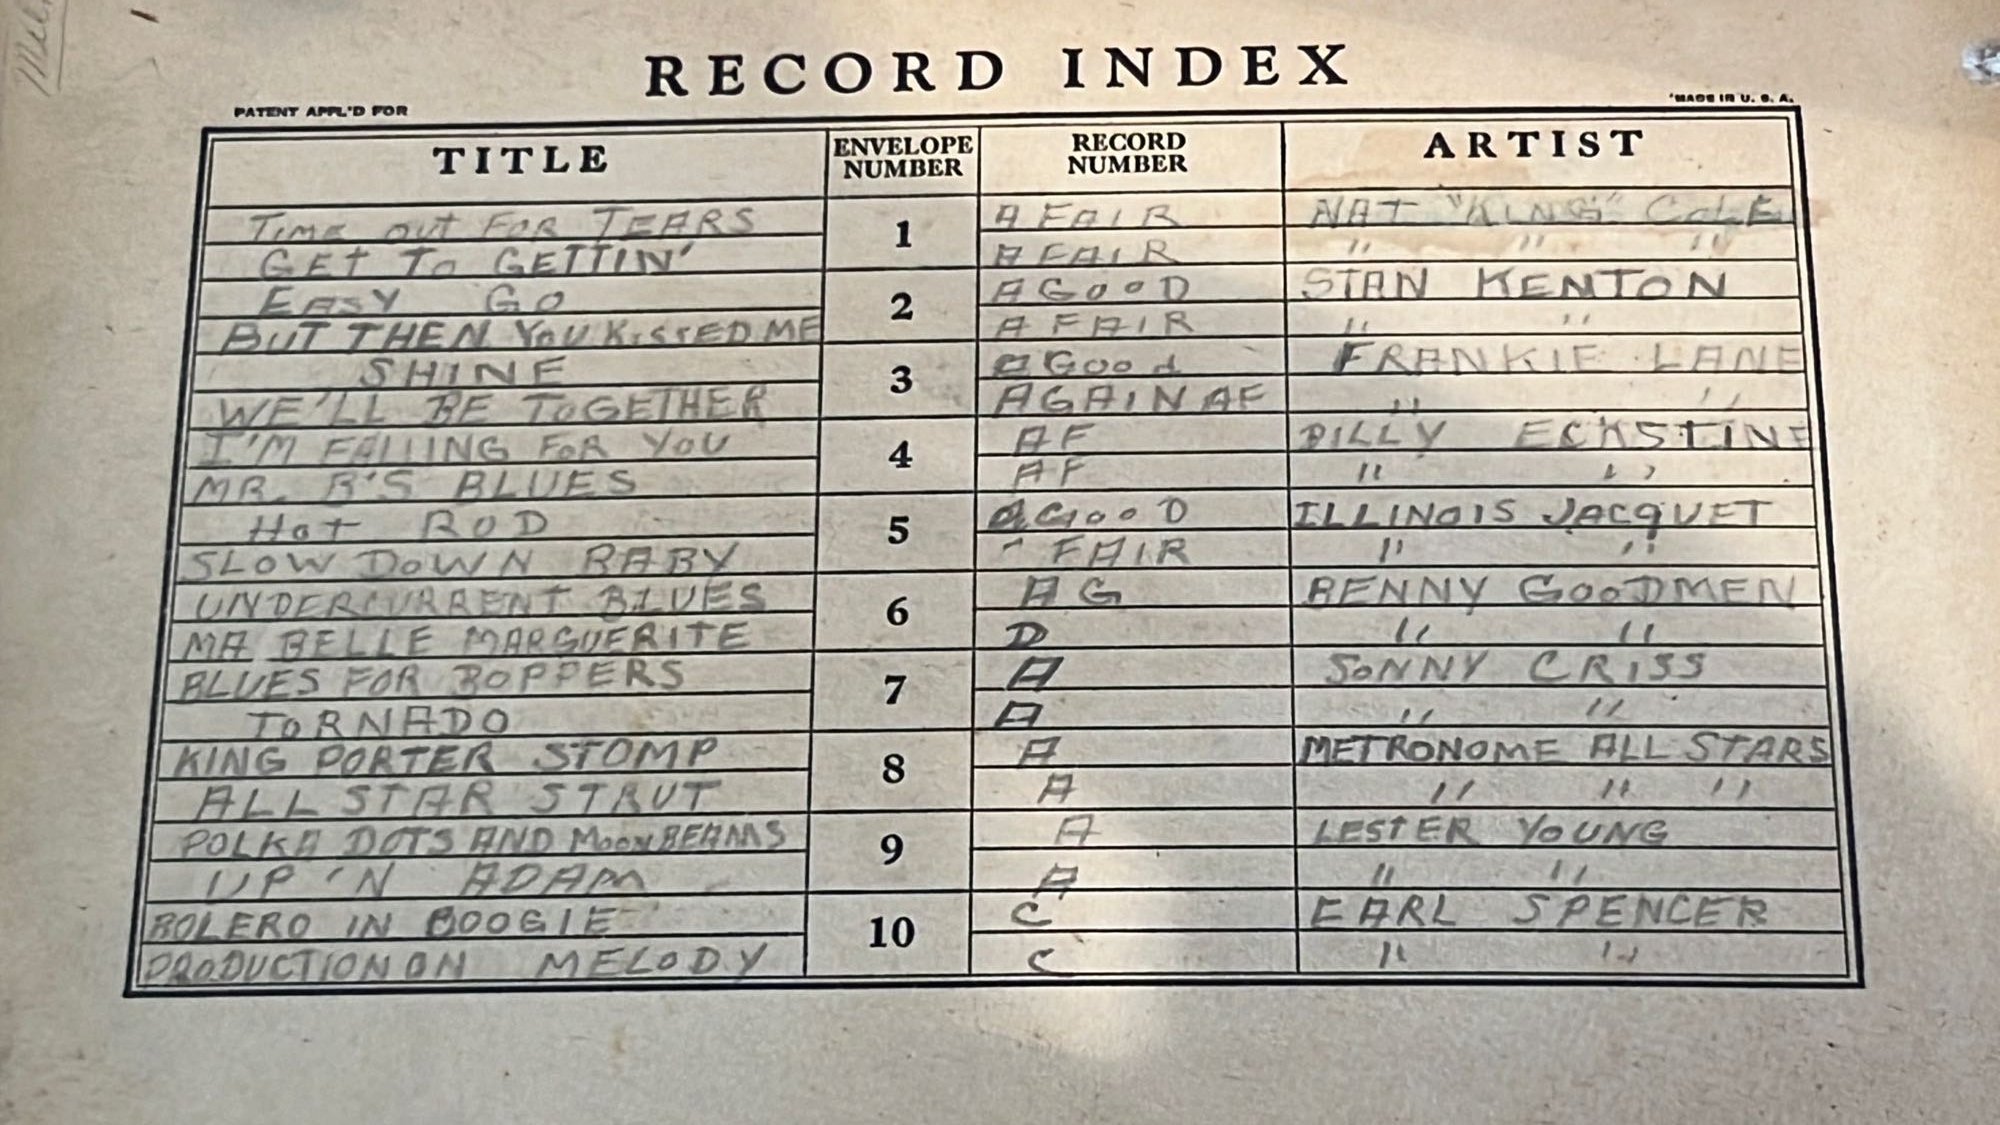 RECORD INDEX
PATENT APPL'D FOR
MADE IN U. S. A.
TITLE ENVELOPE NUMBER RECORD NUMBER ARTIST
TIME OUT FOR TEARS 1 A FAIR NAT "KING" COLE
GET TO GETTIN' A FAIR " " "
EASY GO 2 A GOOD STAN KENTON
BUT THEN YOU KISSED ME A FAIR " "
SHINE 3 A GOOD FRANKIE LANE
WE'LL BE TOGETHER AGAIN AF " "
I'M FALLING FOR YOU 4 AF BILLY ECKSTINE
MR. B'S BLUES AF " "
HOT ROD 5 A GOOD ILLINOIS JACQUET
SLOW DOWN BABY " FAIR " "
UNDERCURRENT BLUES 6 AG BENNY GOODMEN
MA BELLE MARGUERITE D " "
BLUES FOR BOPPERS 7 A SONNY CRISS
TORNADO A " "
KING PORTER STOMP 8 A METRONOME ALL STARS
ALL STAR STRUT A " " "
POLKA DOTS AND MOONBEAMS 9 A LESTER YOUNG
UP 'N ADAM A " "
BOLERO IN BOOGIE 10 C EARL SPENCER
PRODUCTION ON MELODY C " "